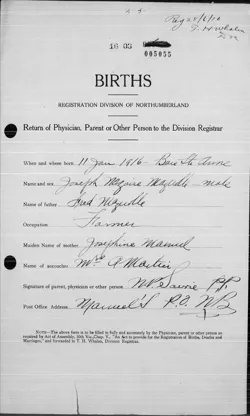 16 03
005055
BIRTHS
REGISTRATION DIVISION OF NORTHUMBERLAND
Return of Physician, Parent or Other Person to the Division Registrar
When and where born 11 Jan 1916 - Baie Ste Anne
Name and sex Joseph male
Name of father Fred
Occupation Farmer
Maiden Name of Mother Josephine Manuel
Name of accoucher Mrs A Martin
Signature of parent, physician or other P.P.
Post Office Address Manuel's P.O. NB
NOTE—The above form is to be filled in fully and accurately by the Physician, parent or other person as required by Act of Assembly, 50th Vic., Chap. V., "An Act to provide for the Registration of Births, Deaths and Marriages," and forwarded to T. H. Whalen, Division Registrar.